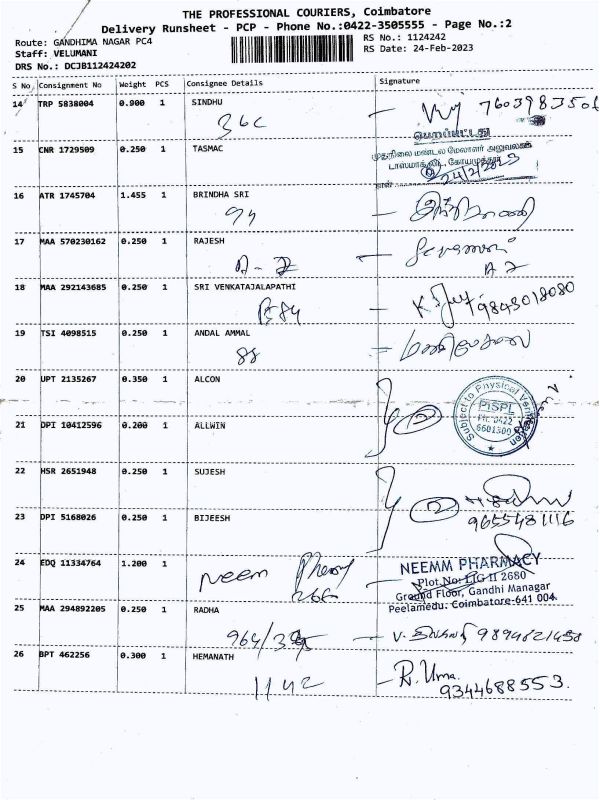 THE PROFESSIONAL COURIERS, Coimbatore
Delivery Runsheet - PCP - Phone No.:0422-3505555 - Page No.:2
Route: GANDHIMA NAGAR PC4
RS No.: 1124242
Staff: VELUMANI
RS Date: 24-Feb-2023
DRS No.: DCJB112424202
S No Consignment No Weight PCS Consignee Details Signature
14 TRP 5838004 0.900 1 SINDHU
36C
15 CNR 1729509 0.250 1 TASMAC
முதுநிலை மண்டல மேலாளர் அலுவலகம்
24/2/2023
16 ATR 1745704 1.455 1 BRINDHA SRI
94
17 MAA 570230162 0.250 1 RAJESH
A-7
A 7
18 MAA 292143685 0.250 1 SRI VENKATAJALAPATHI
84
9843018080
19 TSI 4098515 0.250 1 ANDAL AMMAL
88
20 UPT 2135267 0.350 1 ALCON
Subject to Physical Verification
PISPL
PH: 0422
6601300
21 DPI 10412596 0.200 1 ALLWIN
22 HSR 2651948 0.250 1 SUJESH
2
23 DPI 5168026 0.250 1 BIJEESH
9655481116
24 EDQ 11334764 1.200 1
Neem
266
NEEMM PHARMACY
Plot No: LIG II 2680
Ground Floor, Gandhi Managar
Peelamedu, Coimbatore-641 004.
25 MAA 294892205 0.250 1 RADHA
964/
26 BPT 462256 0.300 1 HEMANATH
1142
R. Uma.
9344688553.